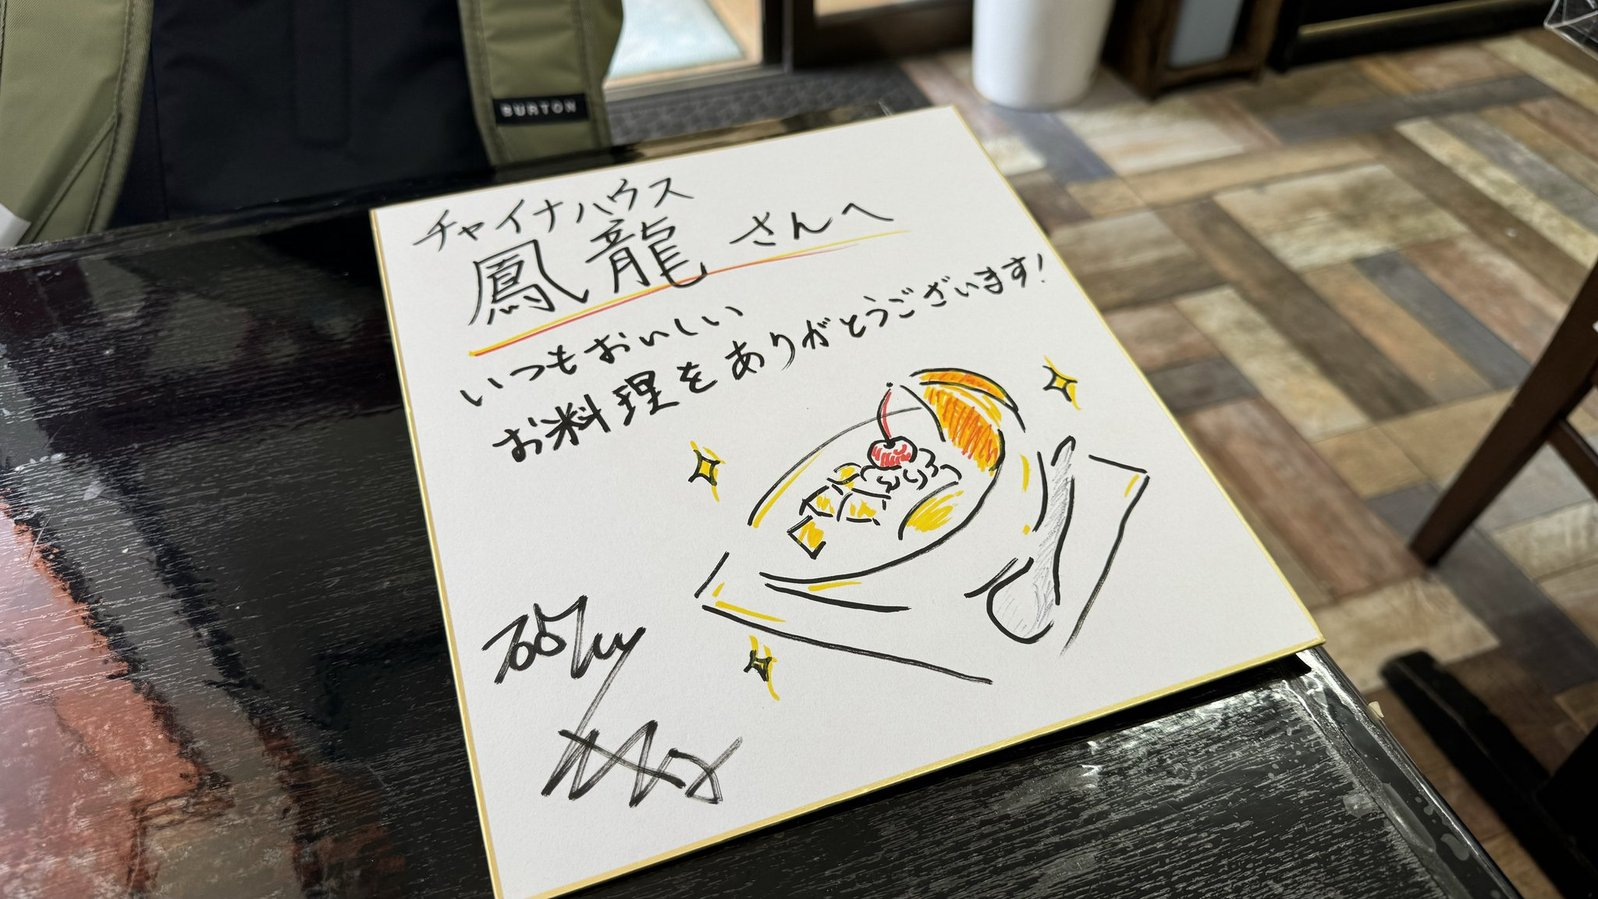 BURTON
チャイナハウス
鳳龍さんへ
いつもおいしい
お料理をありがとうございます!